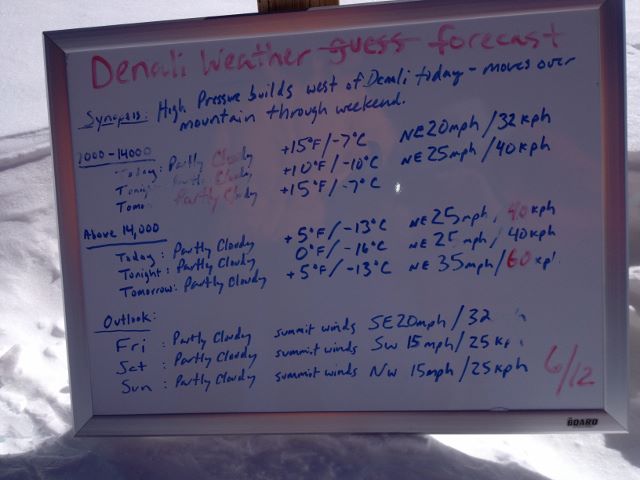 Denali Weather guess forecast
Synopsis: High Pressure builds west of Denali today - moves over
mountain through weekend.
7000-14000
Today: Partly Cloudy +15°F/-7°C NE 20mph/32kph
Tonight: Partly Cloudy +10°F/-10°C NE 25mph/40kph
Tomo Partly Cloudy +15°F/-7°C
Above 14,000
Today: Partly Cloudy +5°F/-13°C NE 25mph, 40kph
Tonight: Partly Cloudy 0°F/-16°C NE 25mph/40kph
Tomorrow: Partly Cloudy +5°F/-13°C NE 35mph/60kp
Outlook:
Fri : Partly Cloudy summit winds SE 20mph/32
Sat : Partly Cloudy summit winds SW 15mph/25kp
Sun : Partly Cloudy summit winds NW 15mph/25kph
6/12
THE BOARD